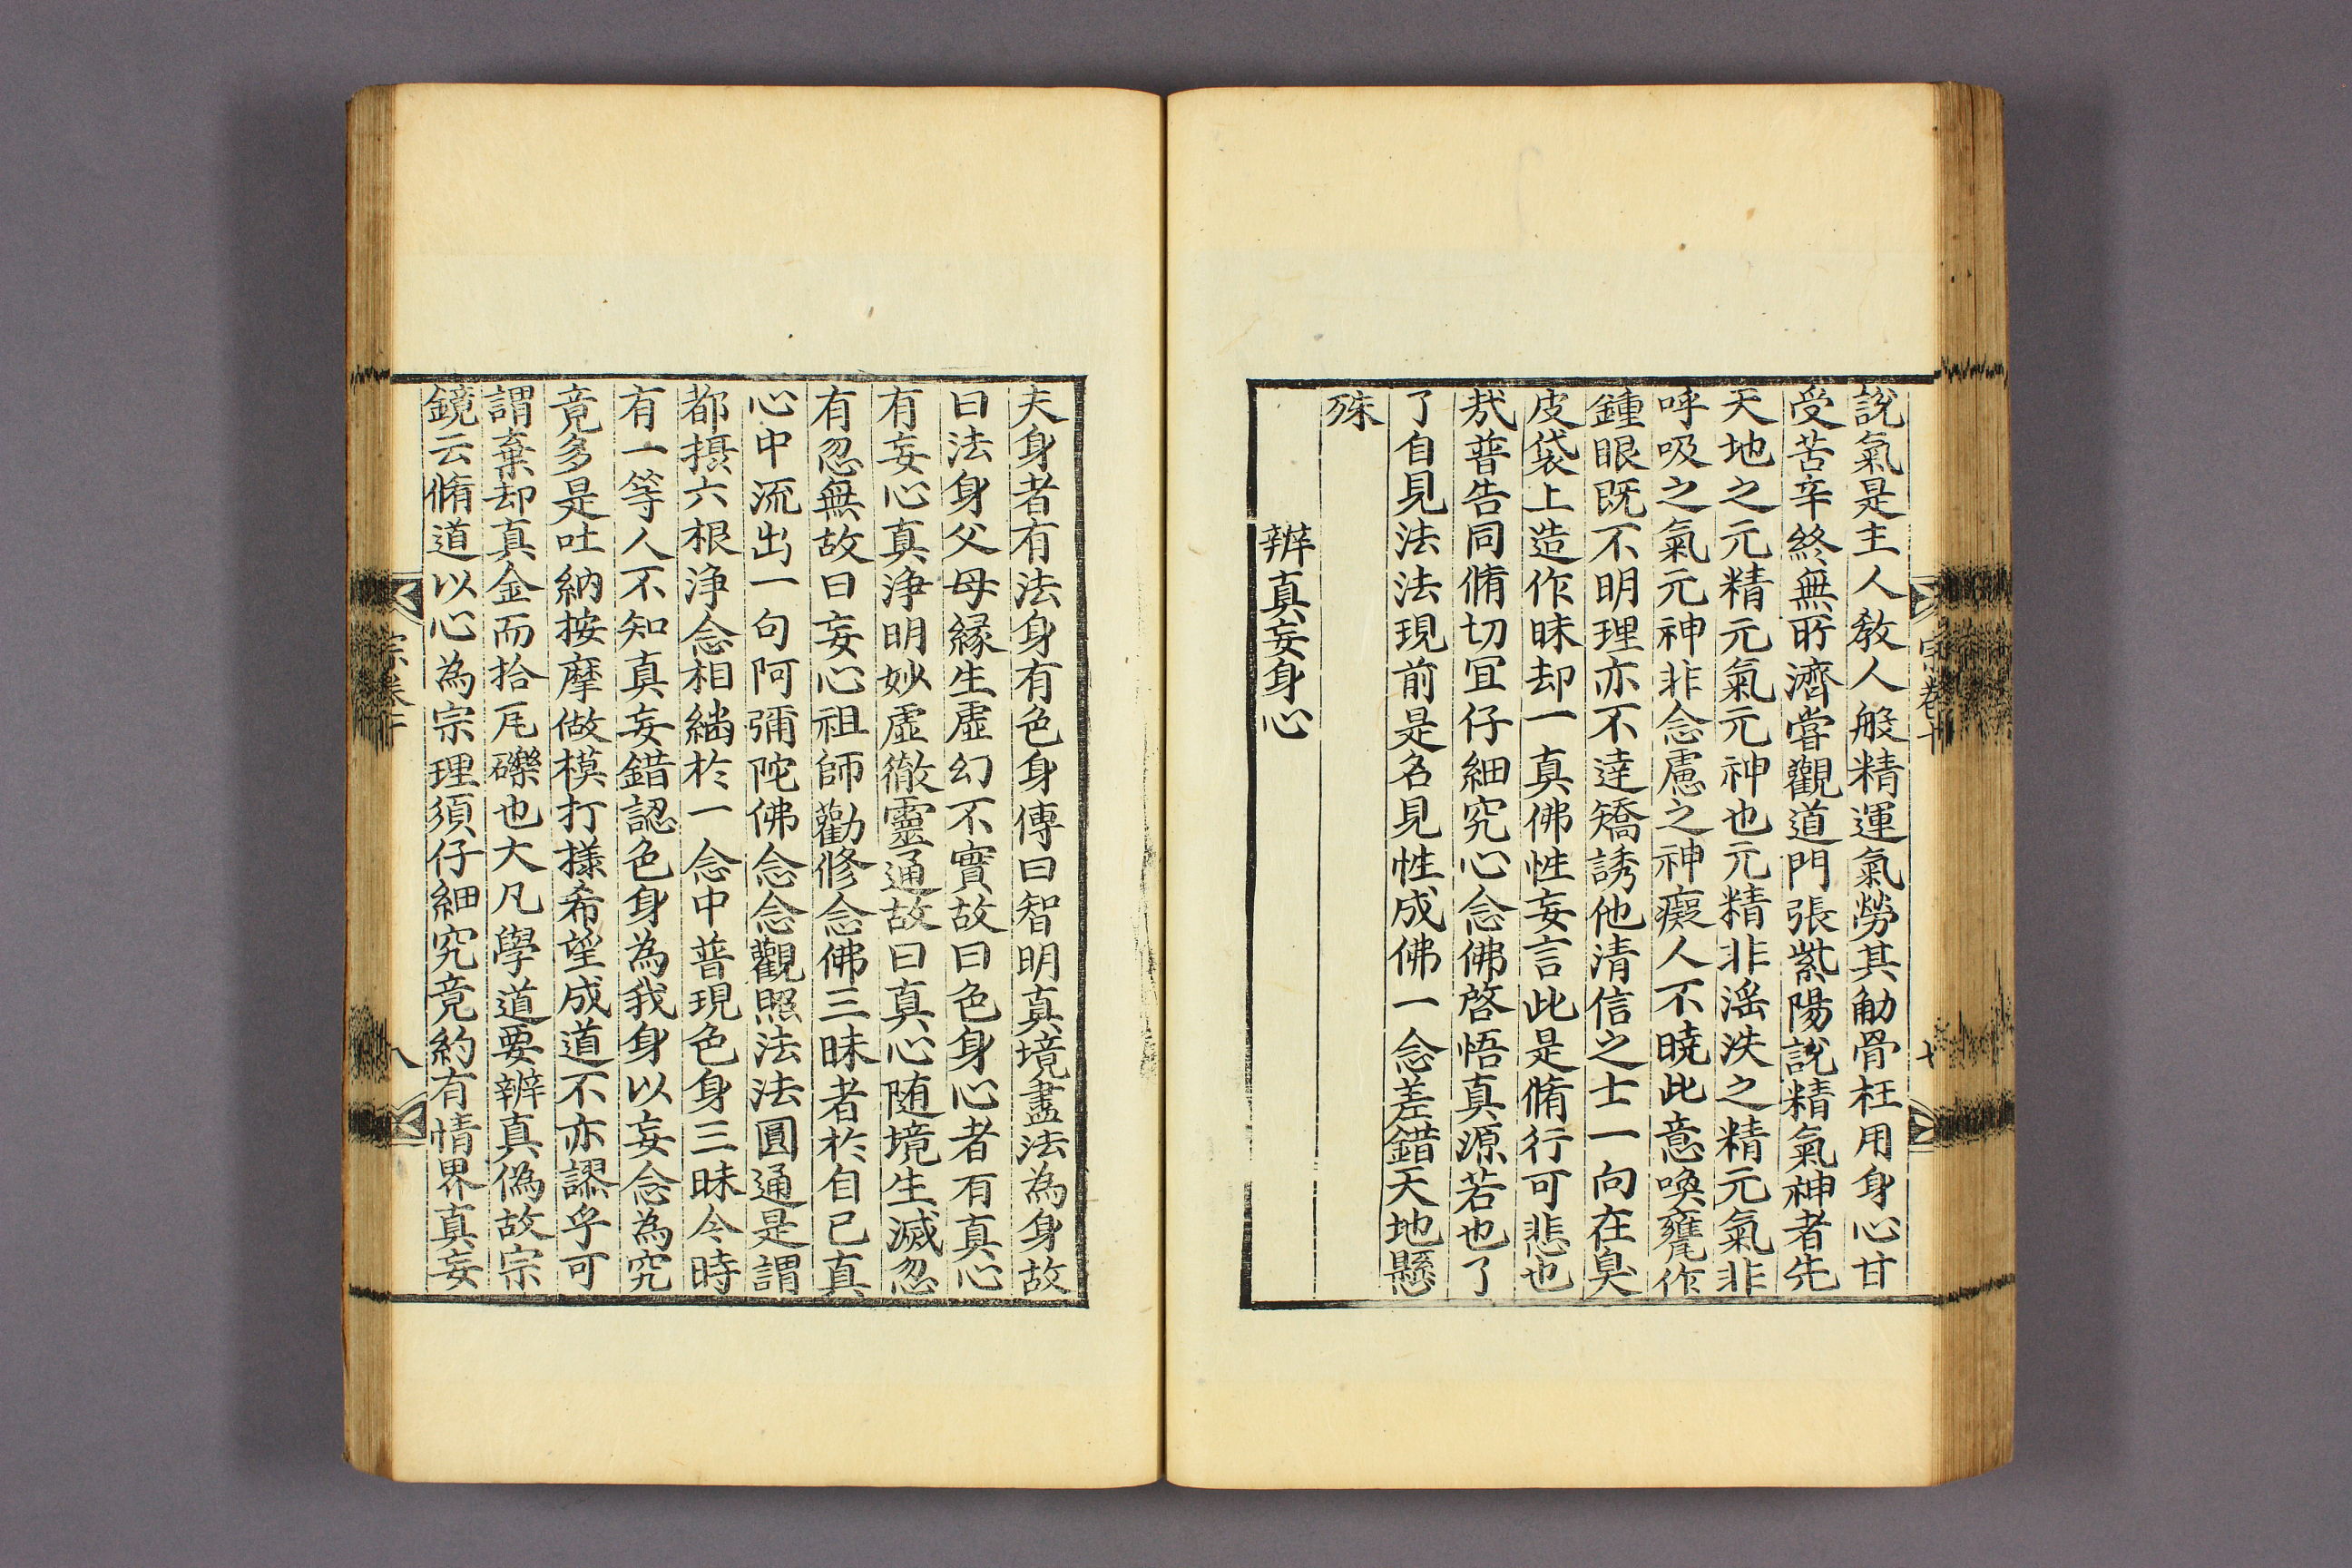 說氣是主人教人般精運氣勞其觔骨枉用身心甘
受苦辛終無所濟嘗觀道門張紫陽說精氣神者先
天地之元精元氣元神也元精非滛泆之精元氣非
呼吸之氣元神非念慮之神癡人不曉此意喚甕作
鍾眼既不明理亦不達矯誘他清信之士一向在臭
皮袋上造作昧却一真佛性妄言此是脩行可悲也
㢤普告同脩切冝仔細究心念佛啓悟真源若也了
了自見法法現前是名見性成佛一念差錯天地懸
殊
辯真妄身心
夫身者有法身有色身傳曰智明真境盡法為身故
曰法身父母緣生虛幻不實故曰色身心者有真心
有妄心真淨明妙虛徹靈通故曰真心随境生滅忽
有忽無故曰妄心祖師勸修念佛三昧者於自己真
心中流出一句阿彌陀佛念念觀照法法圓通是謂
都攝六根淨念相繼於一念中普現色身三昧今時
有一等人不知真妄錯認色身為我身以妄念為究
竟多是吐納按摩做模打樣希望成道不亦謬乎可
謂棄却真金而拾瓦礫也大凡學道要辯真偽故宗
鏡云脩道以心為宗理須仔細究竟約有情界真妄
宗卷十
八